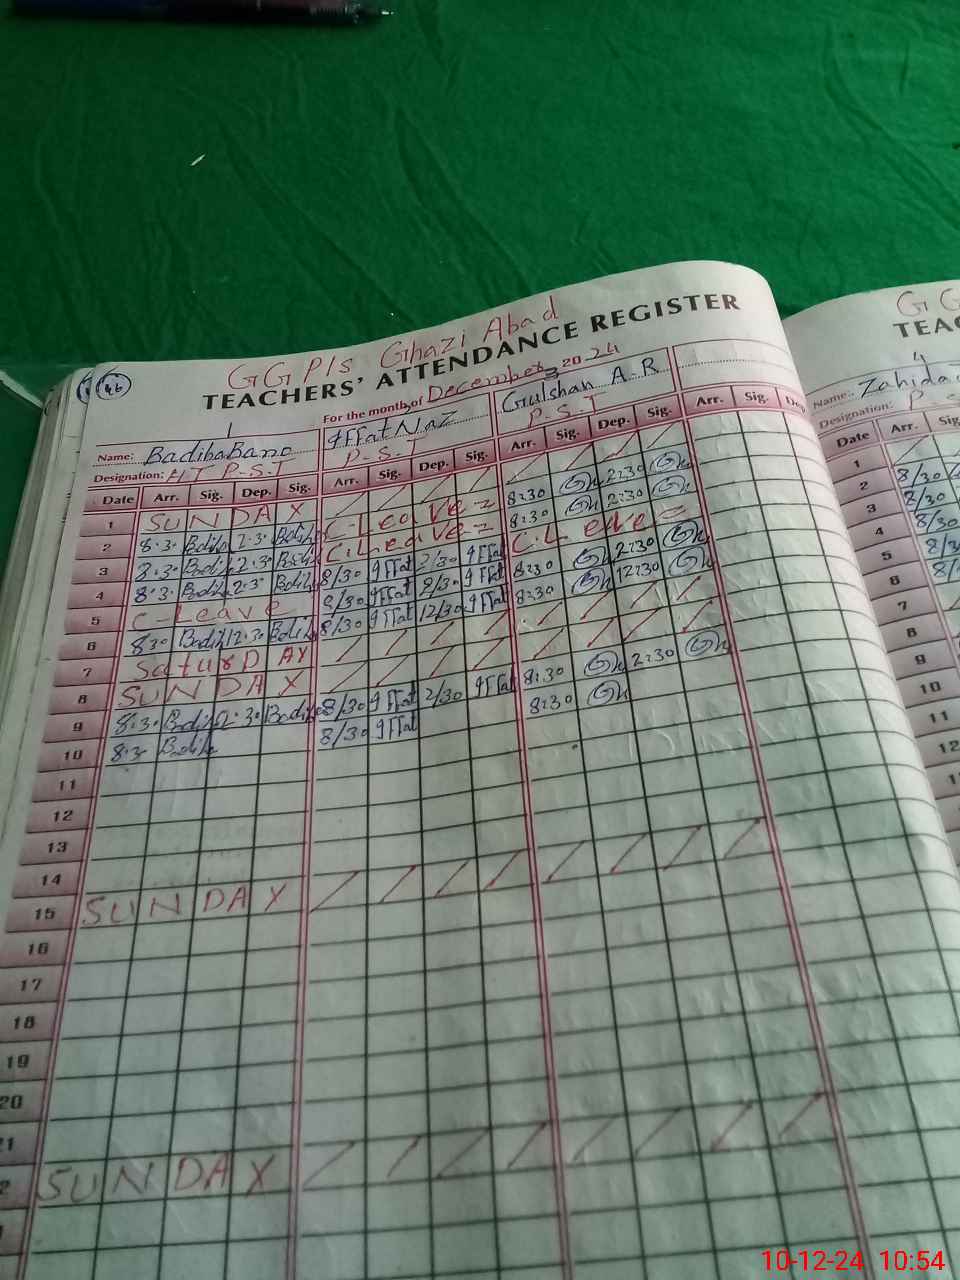 46
GGP/s Ghazi Abad
TEACHERS' ATTENDANCE REGISTER
For the month, of December 2024
1
3
Name: BadibaBano
IffatNaz
Gulshan A.R
Designation: HT P.S.T
P.S.T
P.S.T
Date Arr. Sig. Dep. Sig. Arr. Sig. Dep. Sig. Arr. Sig. Dep. Sig. Arr. Sig. Dep
1 SUNDAY
2 8.3. Badiba 2.3. Badiba C-Leave= 8:30 2:30
3 8.3. Badiba 2.3. Badiba C.Leave= 8:30 2:30
4 8.3. Badiba 2.3. Badiba 8/30 Iffat 2/30 Iffat C.L eave=
5 C-Leave 8/30 Iffat 2/30 Iffat 8:30 2:30
6 830 Badiba 12.30 Badiba 8/30 Iffat 12/30 Iffat 8:30 12:30
7 SatuRDAY
8 SUNDAY
9 8:3. Badiba 2.30 Badiba 8/30 Iffat 2/30 Iffat 8:30 2:30
10 8:3. Badiba 8/30 Iffat 8:30
11
12
13
14
15 SUNDAY
16
17
18
19
20
1
2 SUNDAY
GG
TEAC
4
Name: Zahida
Designation: P.S
Date Arr. Sig
1
2 8/30
3 8/30
4 8/30
5 8/3
6 8/
7
8
9
10
11
12
1
10-12-24 10:54